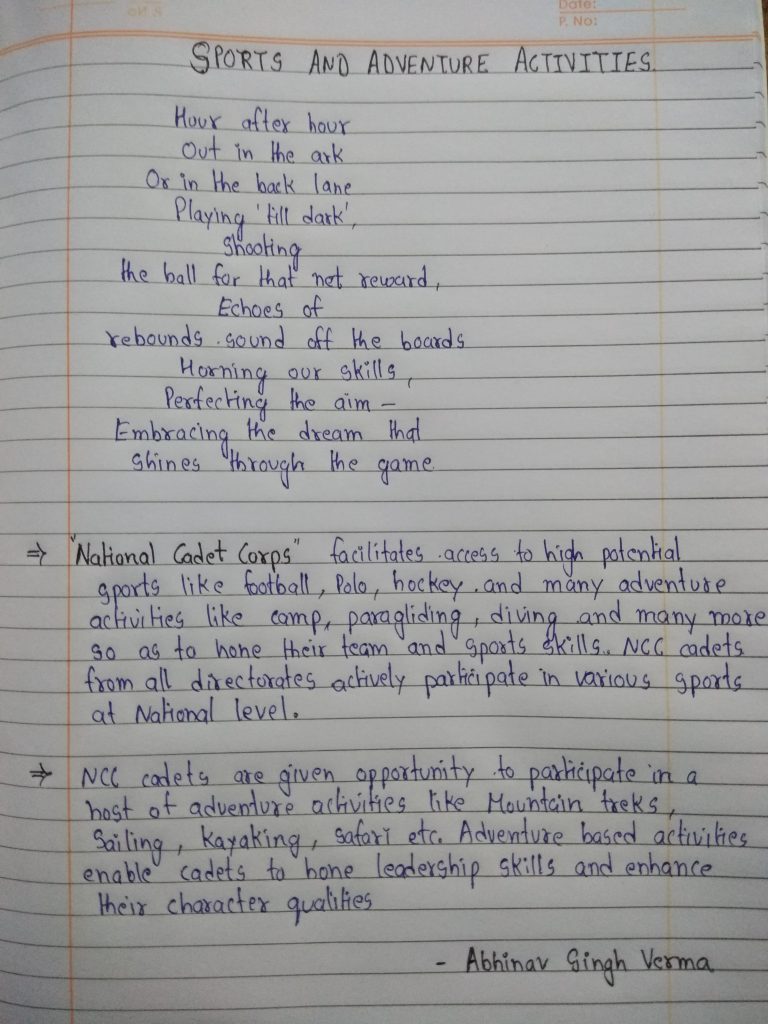 Date:
P. No:
SPORTS AND ADVENTURE ACTIVITIES.
Hour after hour
Out in the ark
Or in the back lane
Playing 'till dark',
Shooting
the ball for that net reward,
Echoes of
rebounds sound off the boards
Horning our skills,
Perfecting the aim -
Embracing the dream that
Shines through the game
⇒ "National Cadet Corps" facilitates access to high potential
sports like football, Polo, hockey and many adventure
activities like camp, paragliding, diving and many more
so as to hone their team and sports skills. NCC cadets
from all directorates actively participate in various sports
at National level.
⇒ NCC cadets are given opportunity to participate in a
host of adventure activities like Mountain treks,
Sailing, Kayaking, safari etc. Adventure based activities
enable cadets to hone leadership skills and enhance
their character qualities
- Abhinav Singh Verma